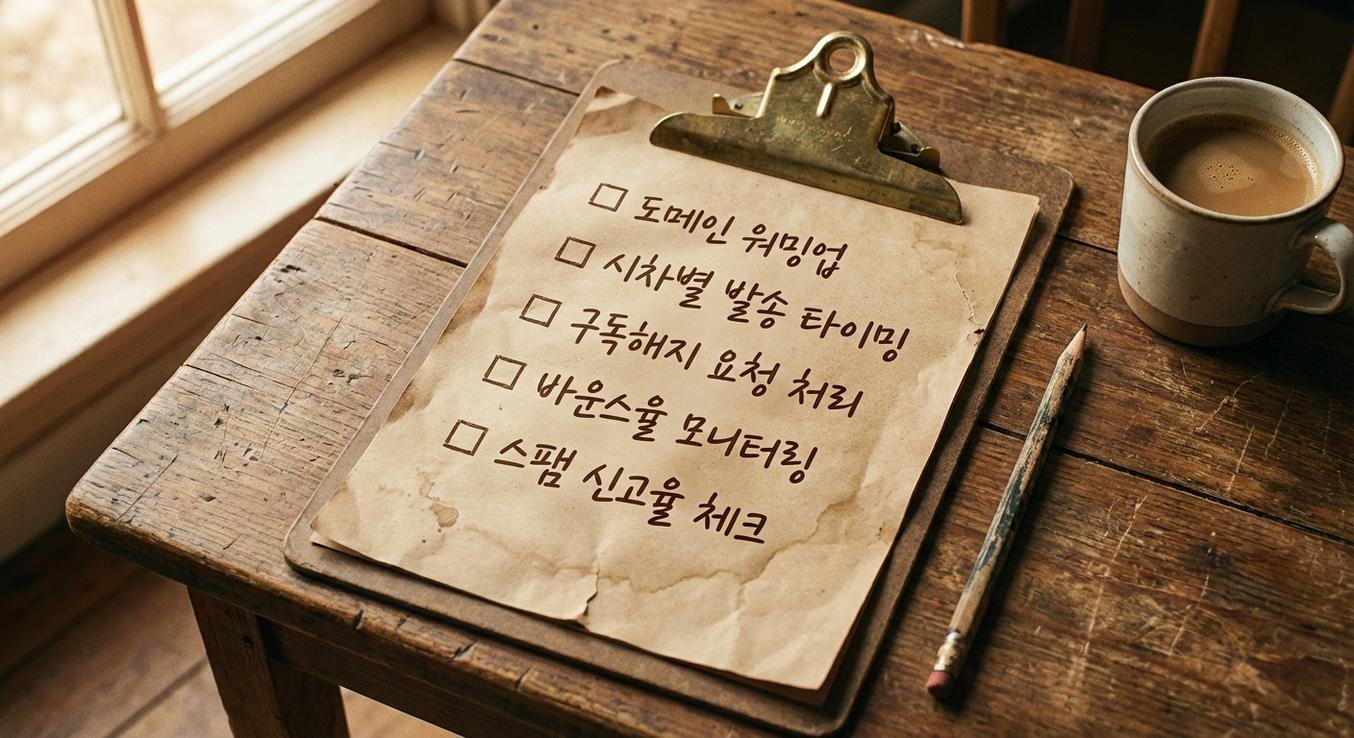 ☐ 도메인 워밍업
☐ 시차별 발송 타이밍
☐ 구독해지 요청 처리
☐ 바운스율 모니터링
☐ 스팸 신고율 체크